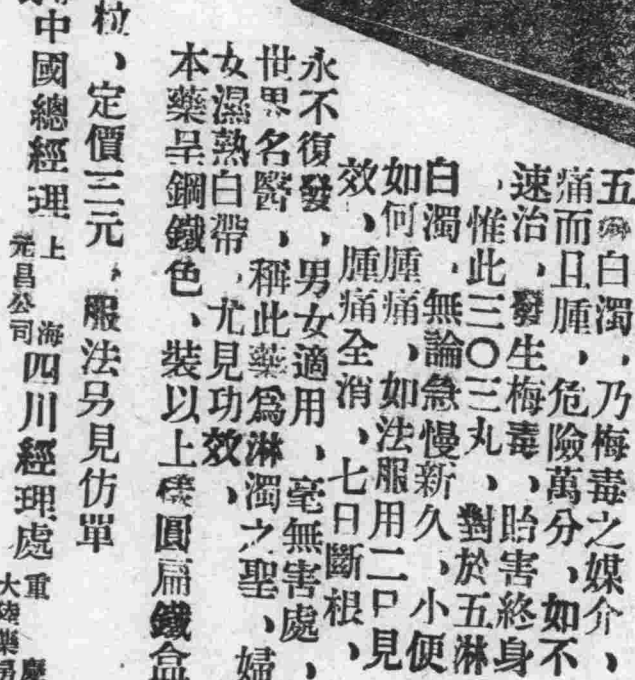 五淋白濁、乃梅毒之媒介、
痛而且腫、危險萬分、如不
速治、發生梅毒、貽害終身
、惟此三〇三丸、對於五淋
白濁、無論急慢新久、小便
如何腫痛、如法服用二日見
效、腫痛全消、七日斷根、
永不復發、男女適用、毫無害處、
世界名醫、稱此藥爲淋濁之聖、婦
女濕熱白帶、尤見功效、
本藥呈鋼鐵色、裝以上樣圓扁鐵盒
粒、定價三元、服法另見仿單
中國總經理 上海 元昌公司 四川經理處 重慶